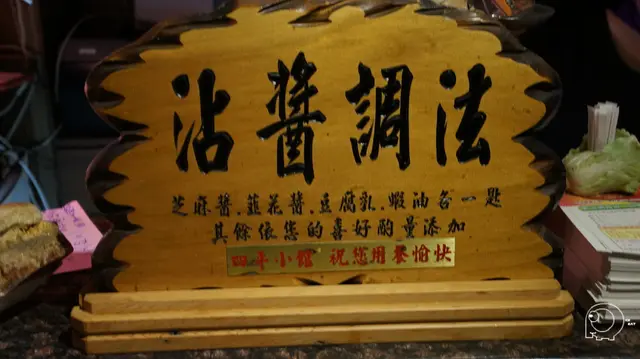 沾醬調法
芝麻醬.韮花醬.豆腐乳.蝦油各一匙
其餘依您的喜好酌量添加
四平小館 祝您用餐愉快